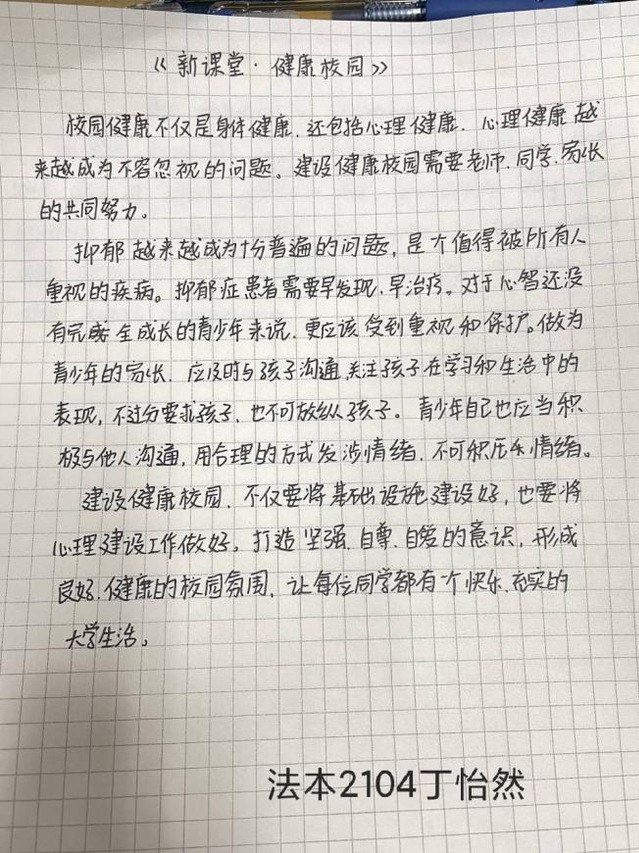 《新课堂·健康校园》
校园健康不仅是身体健康、还包括心理健康、心理健康越
来越成为不容忽视的问题。建设健康校园需要老师、同学、家长
的共同努力。
抑郁越来越成为十分普遍的问题，是个值得被所有人
重视的疾病。抑郁症患者需要早发现、早治疗。对于心智还没
有完成全成长的青少年来说、更应该受到重视和保护。做为
青少年的家长、应及时与孩子沟通、关注孩子在学习和生活中的
表现，不过分要求孩子、也不可放纵孩子。青少年自己也应当积
极与他人沟通，用合理的方式发涉情绪、不可积压情绪。
建设健康校园、不仅要将基础设施建设好，也要将
心理建设工作做好。打造坚强、自尊、自爱的意识，形成
良好、健康的校园氛围、让每位同学都有一个快乐、充实的
大学生活。
法本2104丁怡然